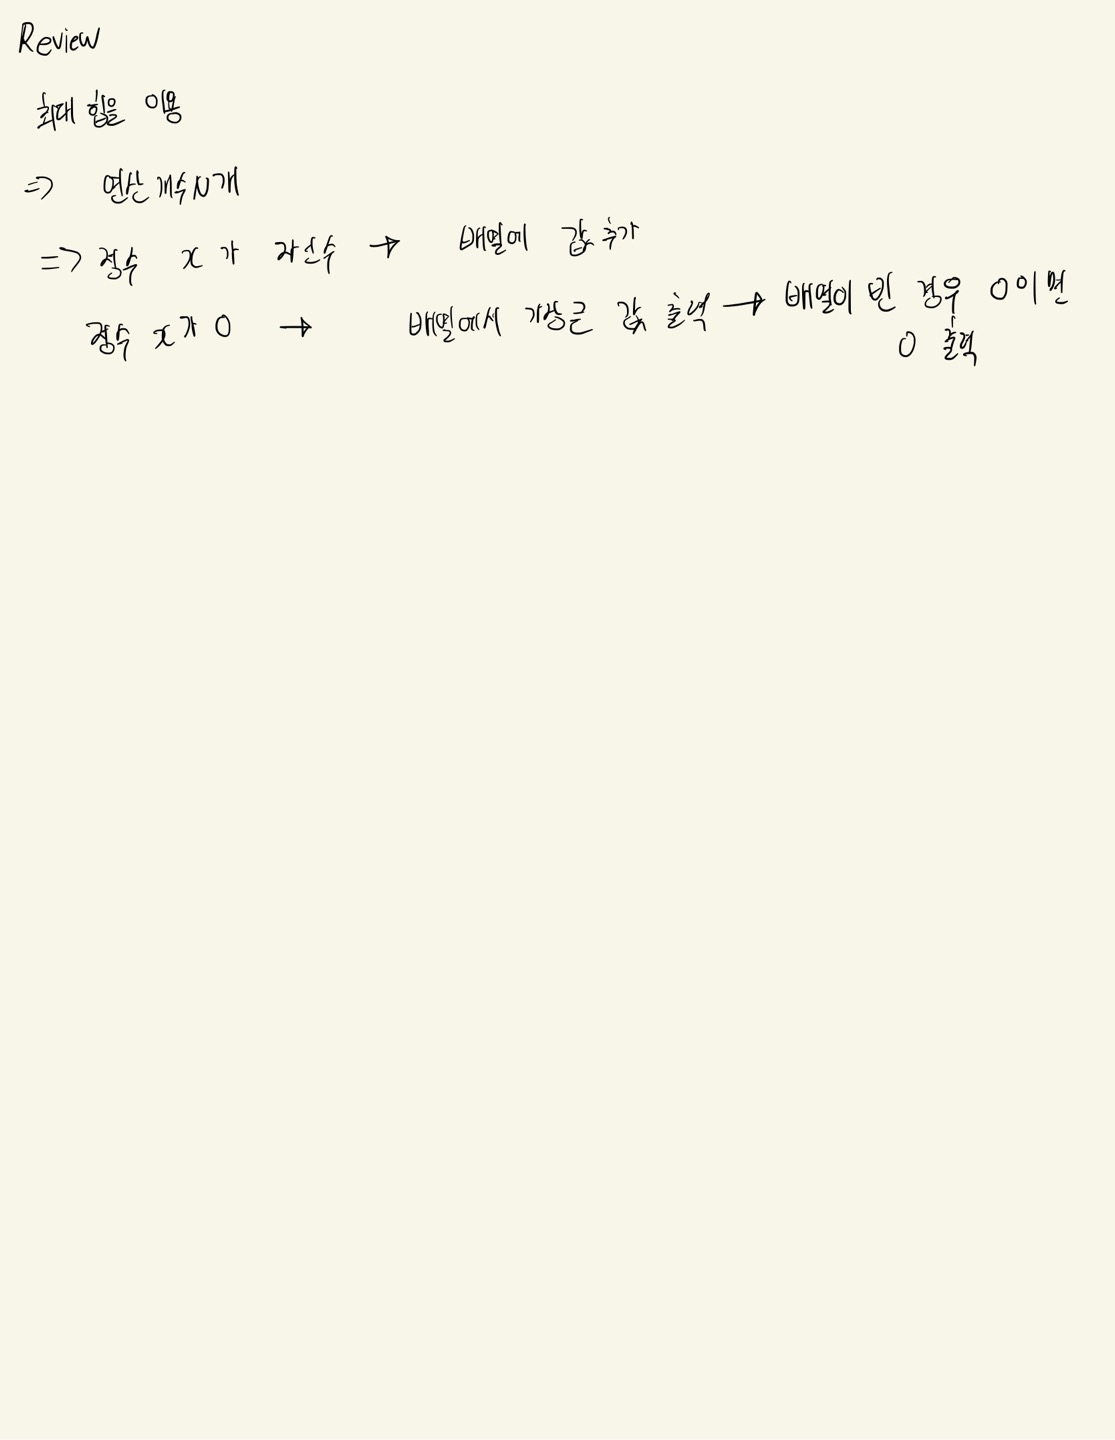 Review
최대 힙을 이용
=> 연산 개수 N개
=> 정수 x가 자연수 → 배열에 값 추가
정수 x가 0 → 배열에서 가장 큰 값 출력 → 배열이 빈 경우 0이면
0 출력